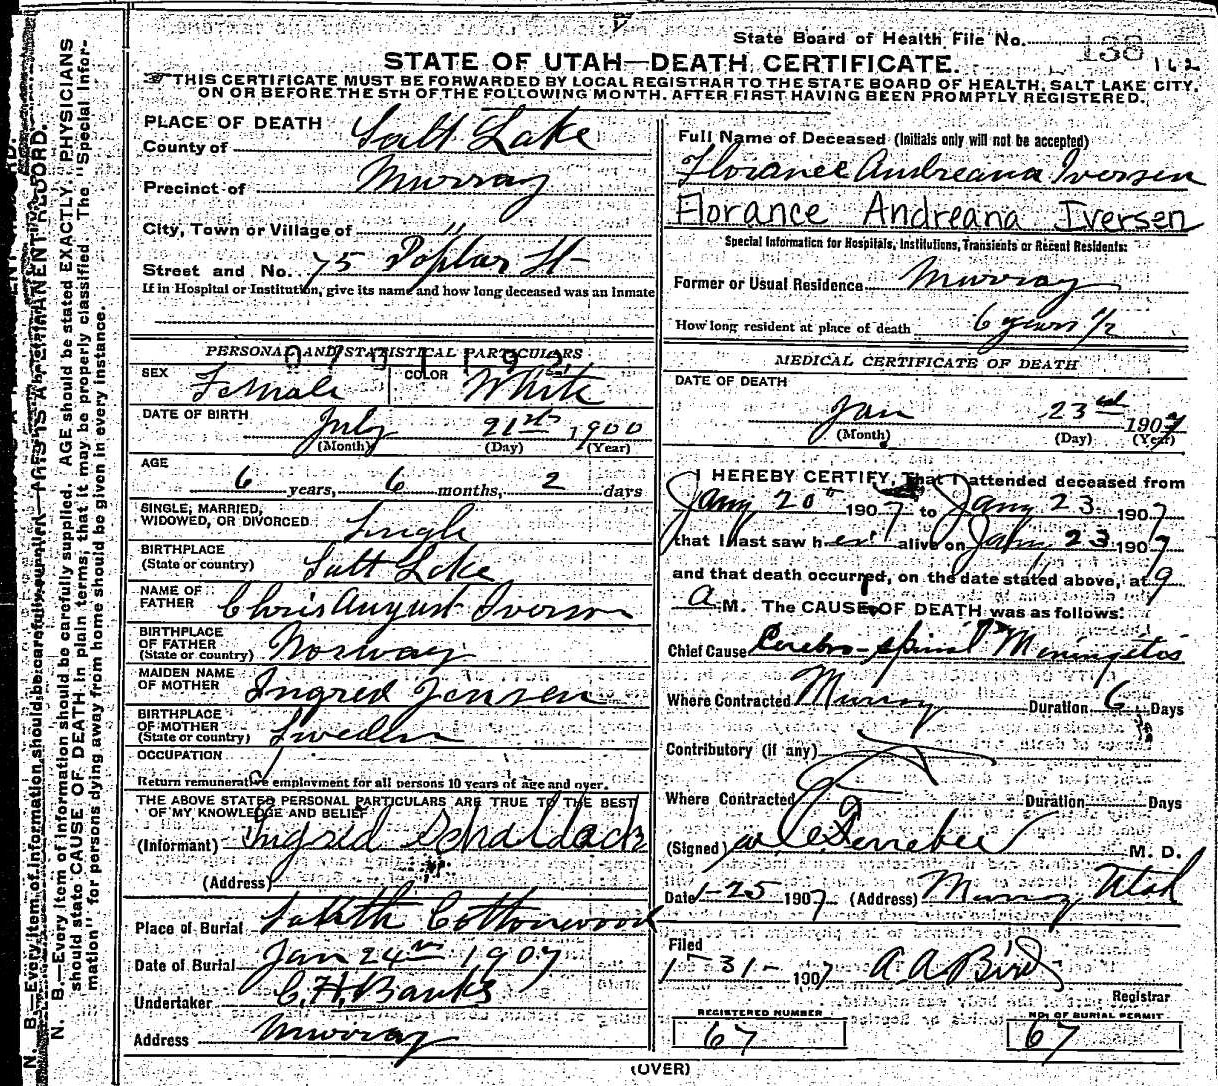 State Board of Health File No. 138
162
STATE OF UTAH—DEATH CERTIFICATE.
THIS CERTIFICATE MUST BE FORWARDED BY LOCAL REGISTRAR TO THE STATE BOARD OF HEALTH, SALT LAKE CITY,
ON OR BEFORE THE 5TH OF THE FOLLOWING MONTH, AFTER FIRST HAVING BEEN PROMPTLY REGISTERED.
PLACE OF DEATH
County of Salt Lake
Precinct of Murray
City, Town or Village of "
Street and No. 75 Poplar St
If in Hospital or Institution, give its name and how long deceased was an inmate
PERSONAL AND STATISTICAL PARTICULARS
SEX Female COLOR White
DATE OF BIRTH
July 21st 1900
(Month) (Day) (Year)
AGE
6 years, 6 months, 2 days
SINGLE, MARRIED,
WIDOWED, OR DIVORCED Single
BIRTHPLACE
(State or country) Salt Lake
NAME OF
FATHER Chris August Iverson
BIRTHPLACE
OF FATHER
(State or country) Norway
MAIDEN NAME
OF MOTHER Ingred Jensen
BIRTHPLACE
OF MOTHER
(State or country) Sweden
OCCUPATION
Return remunerative employment for all persons 10 years of age and over.
THE ABOVE STATED PERSONAL PARTICULARS ARE TRUE TO THE BEST
OF MY KNOWLEDGE AND BELIEF
(Informant) Ingred
(Address)
Place of Burial South Cottonwood
Date of Burial Jan 24th 1907
Undertaker C. H. Banks
Address Murray
Full Name of Deceased (Initials only will not be accepted)
Florance Andreana Iversen
Florance Andreana Iversen
Special Information for Hospitals, Institutions, Transients or Recent Residents:
Former or Usual Residence Murray
How long resident at place of death 6 years 1/2
MEDICAL CERTIFICATE OF DEATH
DATE OF DEATH
Jan 23rd 1907
(Month) (Day) (Year)
I HEREBY CERTIFY, That I attended deceased from
Jany 20th 1907 to Jany 23 1907
that I last saw her alive on Jany 23 1907
and that death occurred, on the date stated above, at 9
a M. The CAUSE OF DEATH was as follows:
Chief Cause Cerebro-spinal Meningitis
Where Contracted Murray Duration 6 Days
Contributory (if any)
Where Contracted Duration Days
(Signed) M. D.
Date 1-25 1907 (Address) Murray Utah
Filed
1-31- 1907 A A Bird
Registrar
REGISTERED NUMBER
67
NO. OF BURIAL PERMIT
67
(OVER)
N. B.—Every item of information should be carefully supplied. AGE should be stated EXACTLY. PHYSICIANS
should state CAUSE OF DEATH in plain terms, that it may be properly classified. The "Special Infor-
mation" for persons dying away from home should be given in every instance.